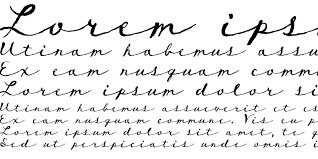 Lorem ips
Utinam habemus assu
Ex eam nusquam commu
Lorem ipsum dolor si
Utinam habemus assueverit et es
Ex eam nusquam commune. Vis eu p
Lorem ipsum dolor sit amet, te q
Sed ut perspiciatis unde omnis